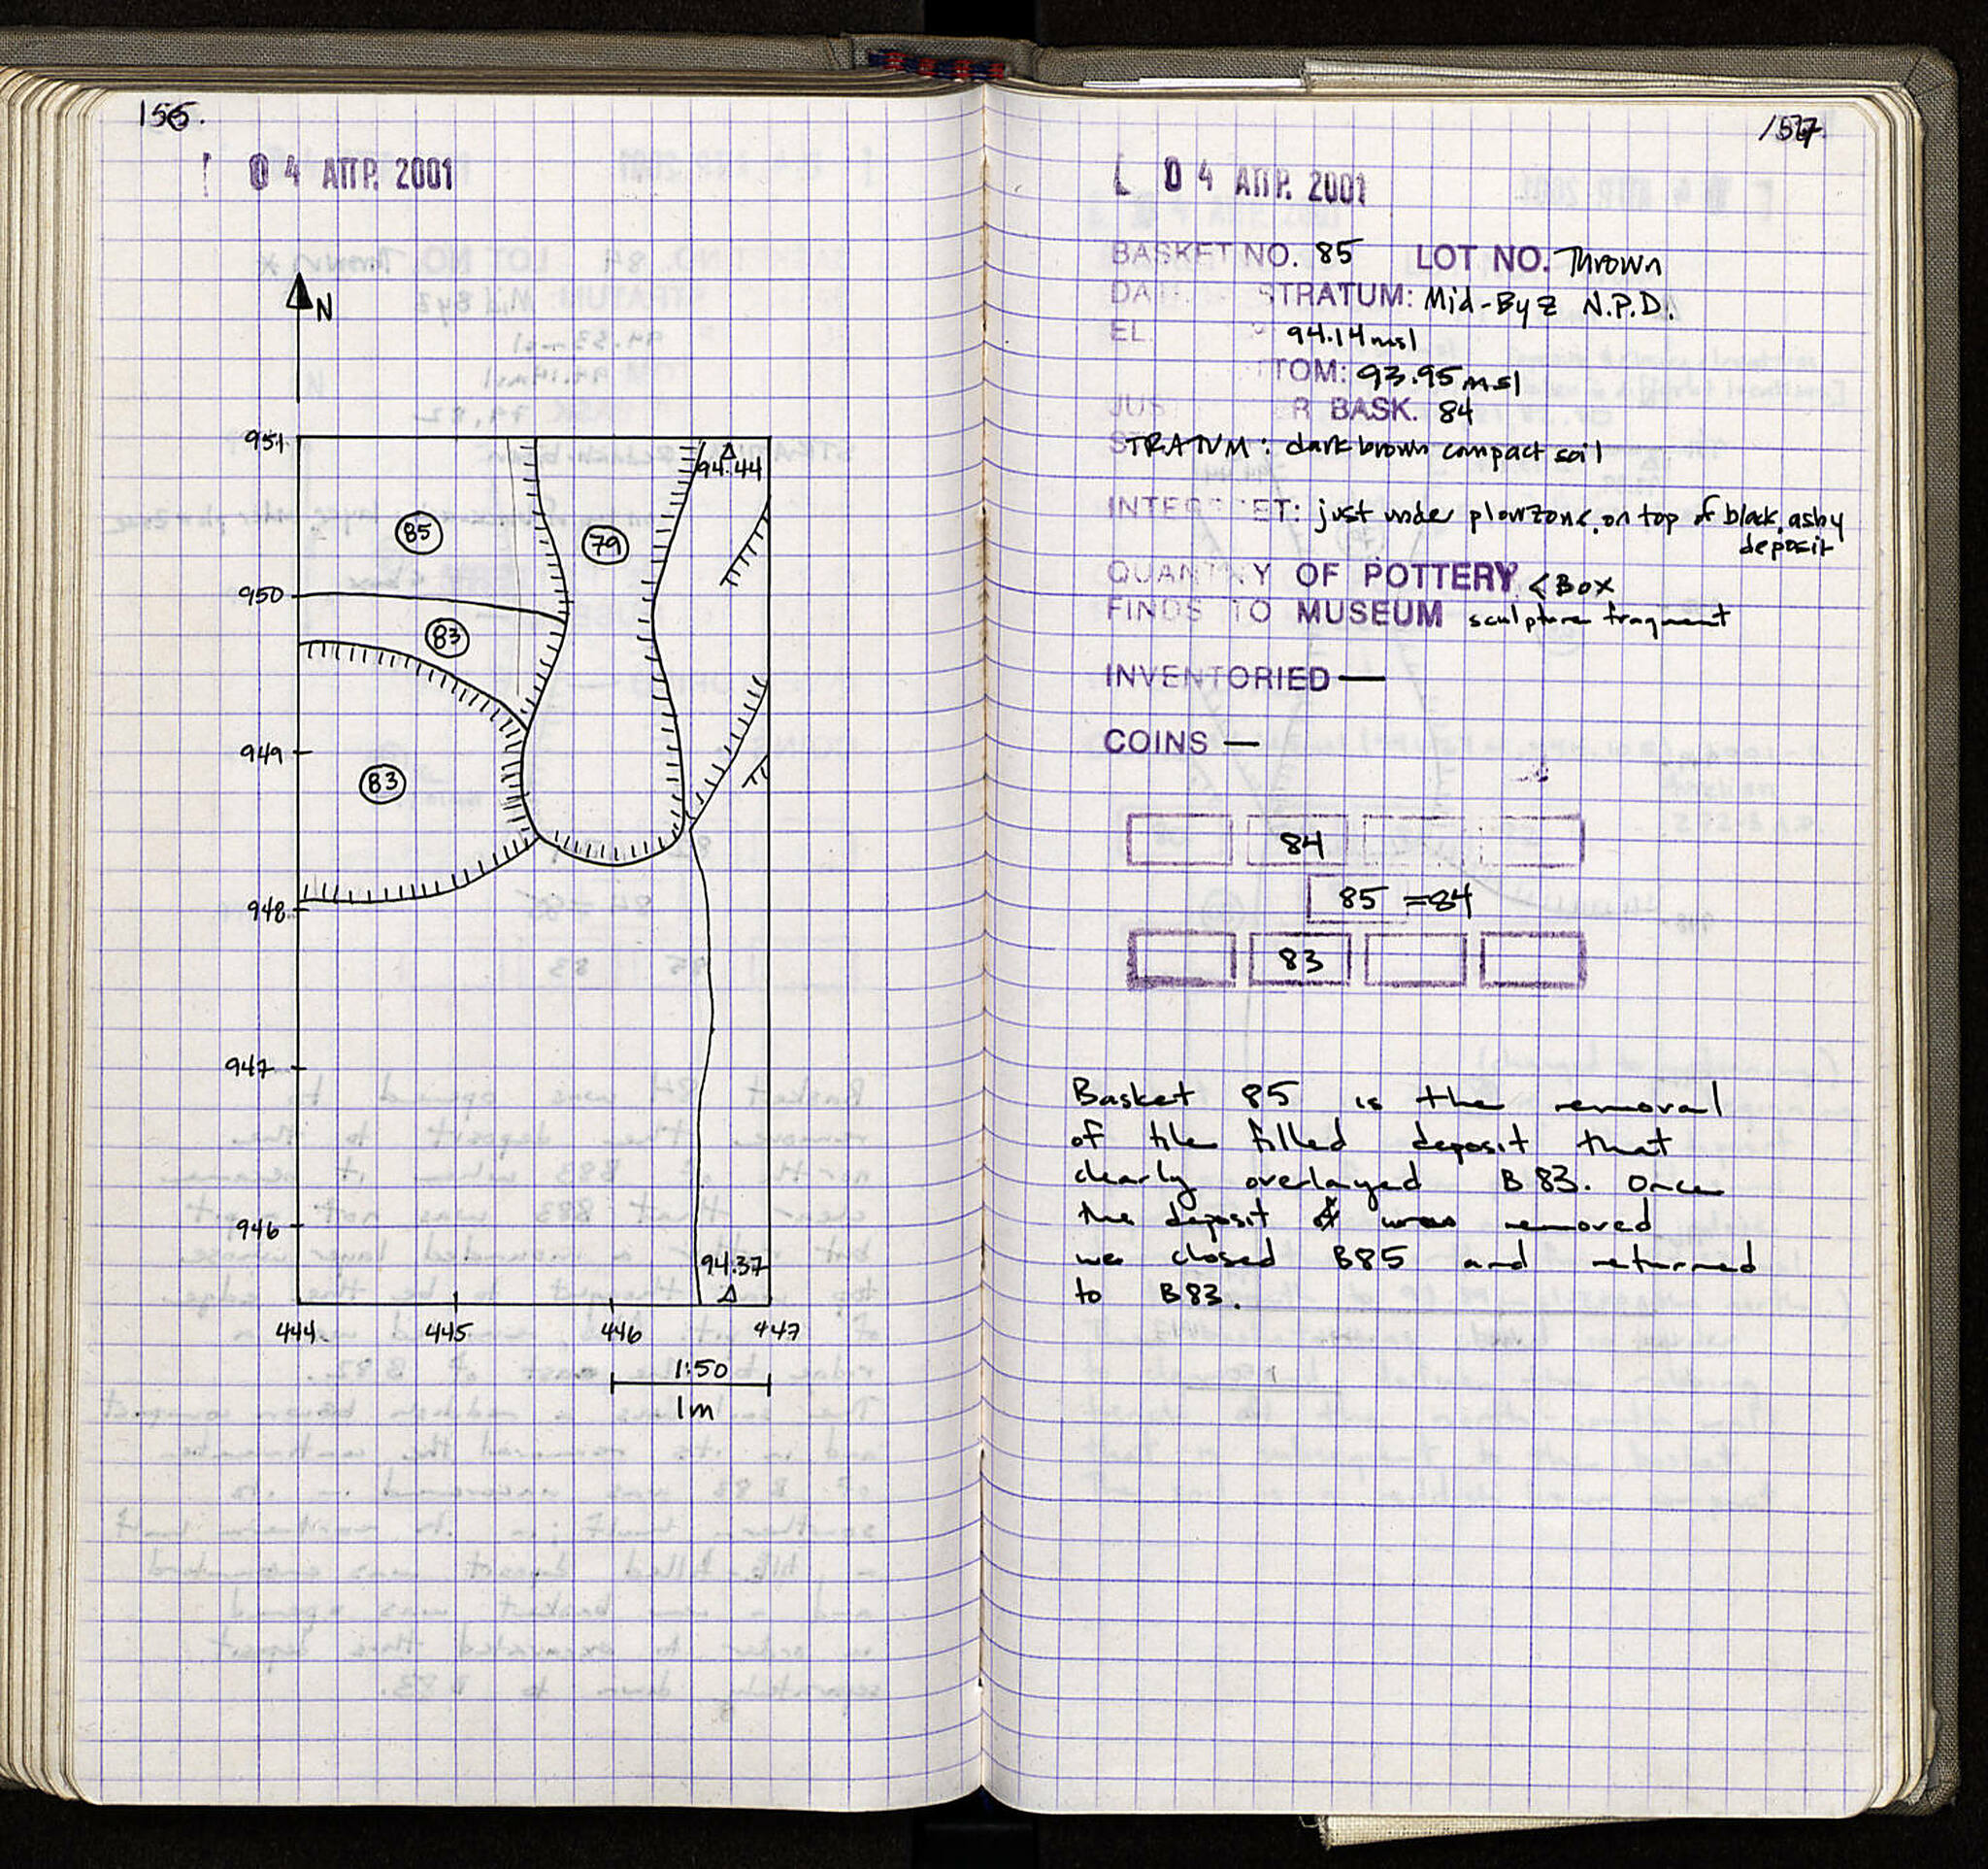 156.
04 ΑΠΡ. 2001
N
951
94.44
85
79
950
83
949
83
948
947
946
94.37
444 445 446 447
1:50
1m
157.
04 ΑΠΡ. 2001
BASKET NO. 85 LOT NO. Thrown
STRATUM: Mid-Byz N.P.D.
EL. 94.14msl
TOM: 93.95msl
JUS R BASK. 84
STRATUM: dark brown compact soil
INTER ET: just under plowzone, on top of black, ashy
deposit
QUANTITY OF POTTERY <Box
FINDS TO MUSEUM sculpture fragment
INVENTORIED —
COINS —
84
85 =84
83
Basket 85 is the removal
of tile filled deposit that
clearly overlayed B 83. Once
the deposit was removed
we closed B85 and returned
to B83.